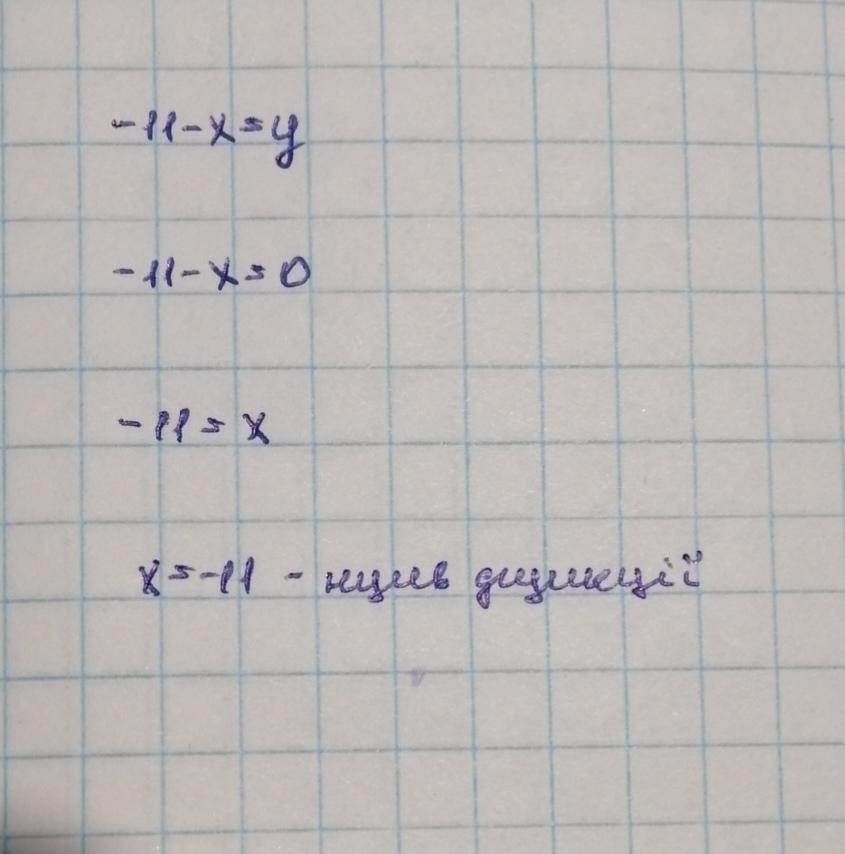 -11-x=y
-11-x=0
-11=x
x=-11 - нулів функції